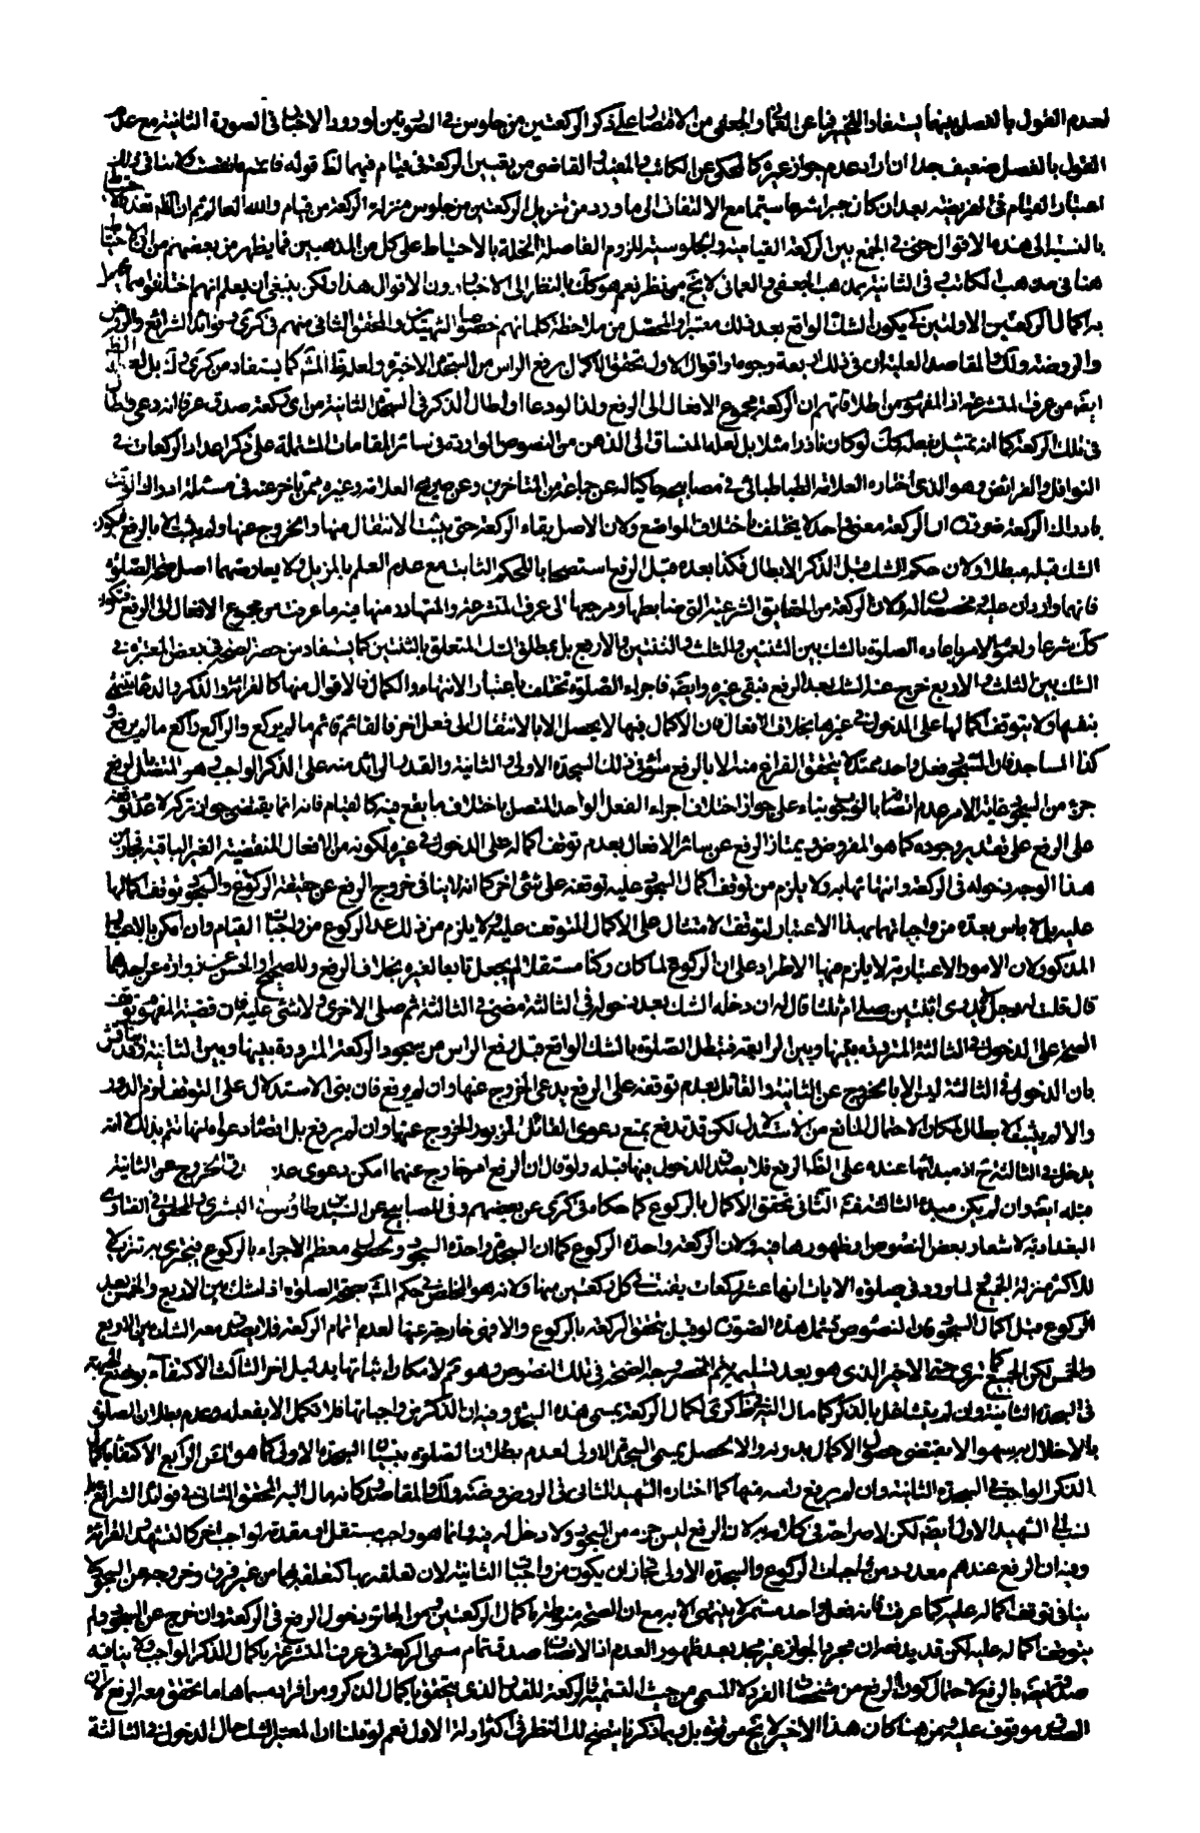 لعدم القول بالفصل بينهما يستفاد التخيير فما عن العماني والجعفي من الاقتصار على ذكر الركعتين من جلوس في الصورتين لورود الاخبار في الصورة الثانية مع عدم
القول بالفصل ضعيف جدا ان اراد عدم جواز غيره كالمحكي عن الكاتب والمفيد والقاضي من تعيين الركعة في قيام فيهما لظ قوله فاتم ما نقصت ولا ينافي ذلك
اعتبار القيام في الفريضة بعد ان كان جبرا شرعا سيما مع الالتفات الى ما ورد من تنزيل الركعتين من جلوس منزلة الركعة من قيام والله العالم ثم ان الظ تعدد الاحتياط
بالنسبة الى هذه الاقوال حتى في الجمع بين الركعة القيامية والجلوسية للزوم الفاصلة المخلة بالاحتياط على كل من المذهبين فما يظهر من بعضهم من ان الاحتياط
هنا في مذهب الكاتب وفي الثانية بمذهب الجعفي والعماني لا يخ من نظر نعم هو كك بالنظر الى الاخبار دون الاقوال هذا ولكن ينبغي ان يعلم انهم اختلفوا فيما يحصل
به اكمال الركعتين الاولتين كي يكون الشك الواقع بعد ذلك معتبرا والمحصل من ملاحظة كلماتهم خصوصا الشهيدين والمحقق الثاني منهم في كرى وفوائد الشرائع والروض
والروضة ولك والمقاصد العلية ان في ذلك اربعة وجوه واقوال الاول تحقق الاكمال برفع الراس من السجدة الاخيرة ولعله ظ المشه كما يستفاد من كرى ولك بل
ايضه من عرف المتشرعة اذ المفهوم من اطلاقاتهم ان الركعة مجموع الافعال الى الرفع ولذا لو دعا او اطال الذكر في السجدة الثانية من اي ركعة صدق عرفا انه دعى واطال
في تلك الركعة كما انه يتمثل بفعله كك لو كان ناذرا مثلا بل لعله المنساق الى الذهن من النصوص الواردة في سائر المقامات المشتملة على ذكر اعداد الركعات في
النوافل والفرائض وهو الذي اختاره العلامة الطباطبائي في مصابيحه حاكيا له عن جماعة من المتاخرين وعن صريح العلامة وغيره ممن تاخر عنه في مسئلة ادراك الوقت
بادراك الركعة ضرورة ان الركعة معنى واحد لا يختلف باختلاف المواضع ولان الاصل بقاء الركعة حتى يثبت الانتقال منها والخروج عنها ولم يثبت الا بالرفع فيكون
الشك قبله مبطلا ولان حكم الشك قبل الذكر الابطال فكذا بعده قبل الرفع استصحابا للحكم الثابت مع عدم العلم بالمزيل ولا يعارضهما اصل صحة الصلوة
فانهما واردان عليه مخصصان له ولان الركعة من الحقايق الشرعية التي ضابطها ومرجعها الى عرف المتشرعة والمتبادر منها فيه ما عرفت من مجموع الافعال الى الرفع فتكون
كك شرعا ولعموم الامر باعادة الصلوة بالشك بين الثنتين والثلث والثنتين والاربع بل بمطلق الشك المتعلق بالثنتين كما يستفاد من حصر الصحيح في بعض المعتبرة في
الشك بين الثلث والاربع خرج عنه الشك بعد الرفع فبقى غيره وايضه فاجزاء الصلوة تختلف باعتبار الانتهاء والكمال فالاقوال منها كالقرائة والذكر والدعاء تنتهي
بنفسها ولا يتوقف اكمالها على الدخول في غيرها بخلاف الافعال فان الاكمال فيها لا يحصل الا بالانتقال الى فعل اخر فالقائم قائم ما لم يركع والراكع راكع ما لم يرفع
كذا الساجد فان السجود فعل واحد ممتد لا يتحقق الفراغ منه الا بالرفع سواء في ذلك السجدة الاولى والثانية والقدر الزائد منه على الذكر الواجب وهو المتصل بالرفع
جزء من السجود غاية الامر عدم اتصافه بالوجوب بناء على جواز اختلاف اجزاء الفعل الواحد المتصل باختلاف ما يقع فيه كالقيام فانه انما يقتضي جواز تركه لا عدم توقفه
على الرفع على تقدير وجوده كما هو المفروض ويمتاز الرفع عن سائر الافعال بعدم توقف اكماله على الدخول في غيره لكونه من الافعال المنقضية الغير الباقية فجاز من
هذا الوجه دخوله في الركعة وانتهائها به ولا يلزم من توقف اكمال السجود عليه توقفه على شيء اخر كما انه لا ينافي خروج الرفع عن حقيقة الركوع والسجود توقف اكمالها
عليه بل لا باس بعده من واجباتهما بهذا الاعتبار لتوقف الامتثال على الاكمال المتوقف عليه ولا يلزم من ذلك عد الركوع من واجبات القيام وان امكن بالاعتبار
المذكور لان الامور الاعتبارية لا يلزم منها الاطراد على ان الركوع لما كان ركنا مستقلا لم يجعل تابعا لغيره بخلاف الرفع وللصحيح او الحسن عن زرارة عن احدهما
قال قلت له رجل لا يدري اثنتين صلى ام ثلثا قال ان دخله الشك بعد دخوله في الثالثة مضى في الثالثة ثم صلى الاخرى ولا شيء عليه فان قضية المفهوم توقف
الصحة على الدخول في الثالثة المترددة بينها وبين الرابعة فتبطل الصلوة بالشك الواقع قبل رفع الراس من سجود الركعة المترددة بينها وبين الثانية وقد يناقش
بان الدخول في الثالثة ليس الا بالخروج عن الثانية والقائل بعدم توقفه على الرفع يدعى الخروج عنها وان لم يرفع فان بنى الاستدلال على التوقف لزم الدور
والا لم يثبت الابطال لمكان الاحتمال المانع من الاستدلال لكن قد تدفع بمنع دعوى القائل المزبور الخروج عنها وان لم يرفع بل اقصاه دعوى اكمالها ثم بذلك لا انه
يدخل في الثالثة ح اذ مبدئها عنده على الظ الرفع فلا يصدق الدخول فيها قبله ولو قال ان الرفع امر خارج عنهما امكن دعوى عدم صدق الخروج عن الثانية
قبله ايضه وان لم يكن مبدء الثالثة فت الثاني تحقق الاكمال بالركوع كما حكاه في كرى عن بعضهم وفي المصابيح عن السيد بن طاوس في البشرى والمحقق في الفتاوى
البغدادية لاشعار بعض النصوص او ظهورها فيه ولان الركعة واحدة الركوع كما ان السجدة واحدة السجود ولحصول معظم الاجزاء بالركوع فيجتزى به تنزيلا
للاكثر منزلة الجميع لما ورد في صلوة الايات انها عشر ركعات يقنت في كل ركعتين منها ولانه هو الخاص في حكم المشه بصحة الصلوة اذا شك بين الاربع والخمس بعد
الركوع قبل اكمال السجود فان النصوص تشمل هذه الصورة لو قيل بتحقق الركعة بالركوع والا فهي خارجة عنها لعدم اتمام الركعة فلا يصدق معه الشك بين الاربع
والخمس لكن الجميع كما ترى حتى الاخير الذي هو بعد تسليمه يتم المحصر وجه الصحة في ذلك النصوص وهو ثم لامكان اثباتها بدليل اخر الثالث الاكتفاء بوضع الجبهة
في السجدة الثانية وان لم يتشاغل بالذكر كما مال اليه في ظ كرى لكمال الركعة بمسمى هذه السجود وفيه ان الذكر من واجباتها فلا تكمل الا بفعله وعدم بطلان الصلوة
بالاخلال به سهوا لا يقتضي حصول الاكمال بدونه والا لحصل بمسمى السجدة الاولى لعدم بطلان الصلوة بنسيان السجدة الاولى كما هو الحق الرابع الاكتفاء باكمال
الذكر الواجب في السجدة الثانية وان لم يرفع راسه منها كما اختاره الشهيد الثاني في الروض وضة ولك والمقاصد وكانه مال اليه المحقق الثاني في فوائد الشرائع بل
نسب الى الشهيد الاول ايضه لكن لا صراحة في كلامه به لان الرفع ليس جزء من السجود ولا دخل له فيه وانما هو واجب مستقل او مقدمة لواجب اخر كالتشهد والقرائة
وفيه ان الرفع عندهم معدود من واجبات الركوع والسجدة الاولى فجاز ان يكون من واجبات الثانية لان تعلقه بها كتعلقه بهما من غير فرق وخروجه عن السجود لا
ينافي توقف اكماله عليه كما عرفت فانه فعل واحد مستمر لا ينتهي الا به مع ان الصحة منوطة باكمال الركعتين فمن الجائز دخول الرفع في الركعة وان خرج عن السجود ولم
يتوقف اكماله عليه لكن قد يدفع ان مجرد الجواز غير مجد بعد ظهور العدم اذ الانصاف صدق تمام مسمى الركعة في عرف المتشرعة باكمال الذكر الواجب ولا ينافيه
صدق تمامه بالرفع لاحتمال كون الرفع من مشخصات الفرد لا المسمى من حيث التسمية فالركعة للقدر الذي يتحقق باكمال الذكر ومن افراد مسماها ما يتحقق معه الرفع لا ان
الصدق موقوف عليه ومن هنا كان هذا الاخير لا يخ من قوة بل وبما ذكرنا يتضح لك النظر في اكثر ادلة الاول نعم لو قلنا ان المعتبر الشك حال الدخول في الثالثة